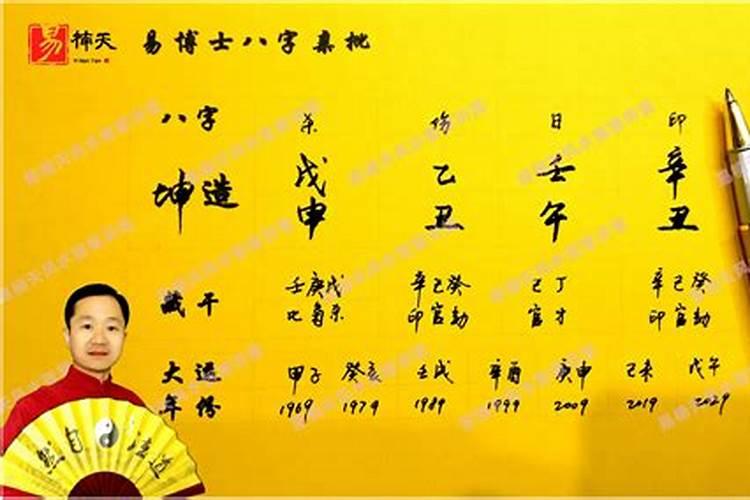 易楠天 易博士八字集批
八字 杀 伤 日 印
坤造 戊申 乙丑 壬午 辛丑
藏干 壬庚戊 辛己癸 己丁 辛己癸
比枭杀 印官劫 官才 印官劫
大运 甲子 癸亥 壬戌 辛酉 庚申 己未 戊午
年份 1969 1979 1989 1999 2009 2019 2029
然自法道